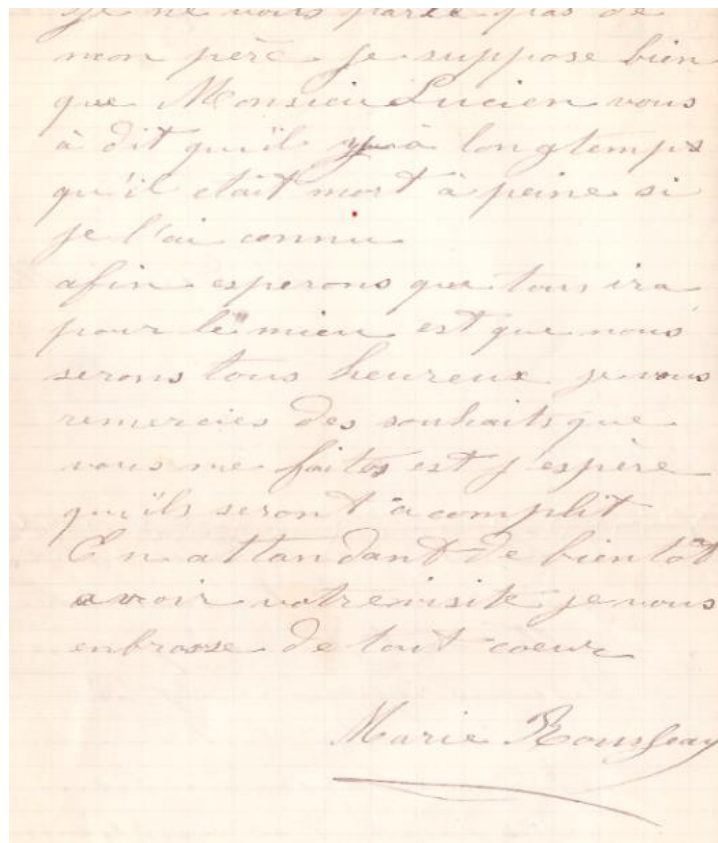 je ne vous parle pas de
mon père je suppose bien
que Monsieu Lucien vous
à dit qu'il y à longtemps
qu'il etait mort à peine si
je l'ai connu
afin esperons que tous ira
pour le mieu est que nous
serons tous heureux je vous
remercies des souhaits que
vous me faites est j'espère
qu'ils seront acomplit
En attandant de bientôt
avoir votre visite je vous
enbrasse de tout coeur
Marie Rousseau